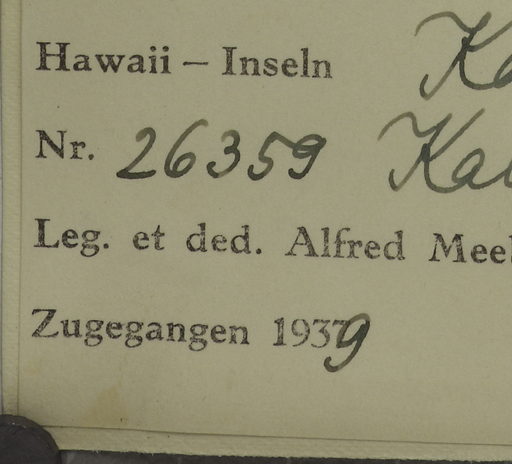 Hawaii – Inseln
Nr. 26359
Leg. et ded. Alfred
Zugegangen 1939